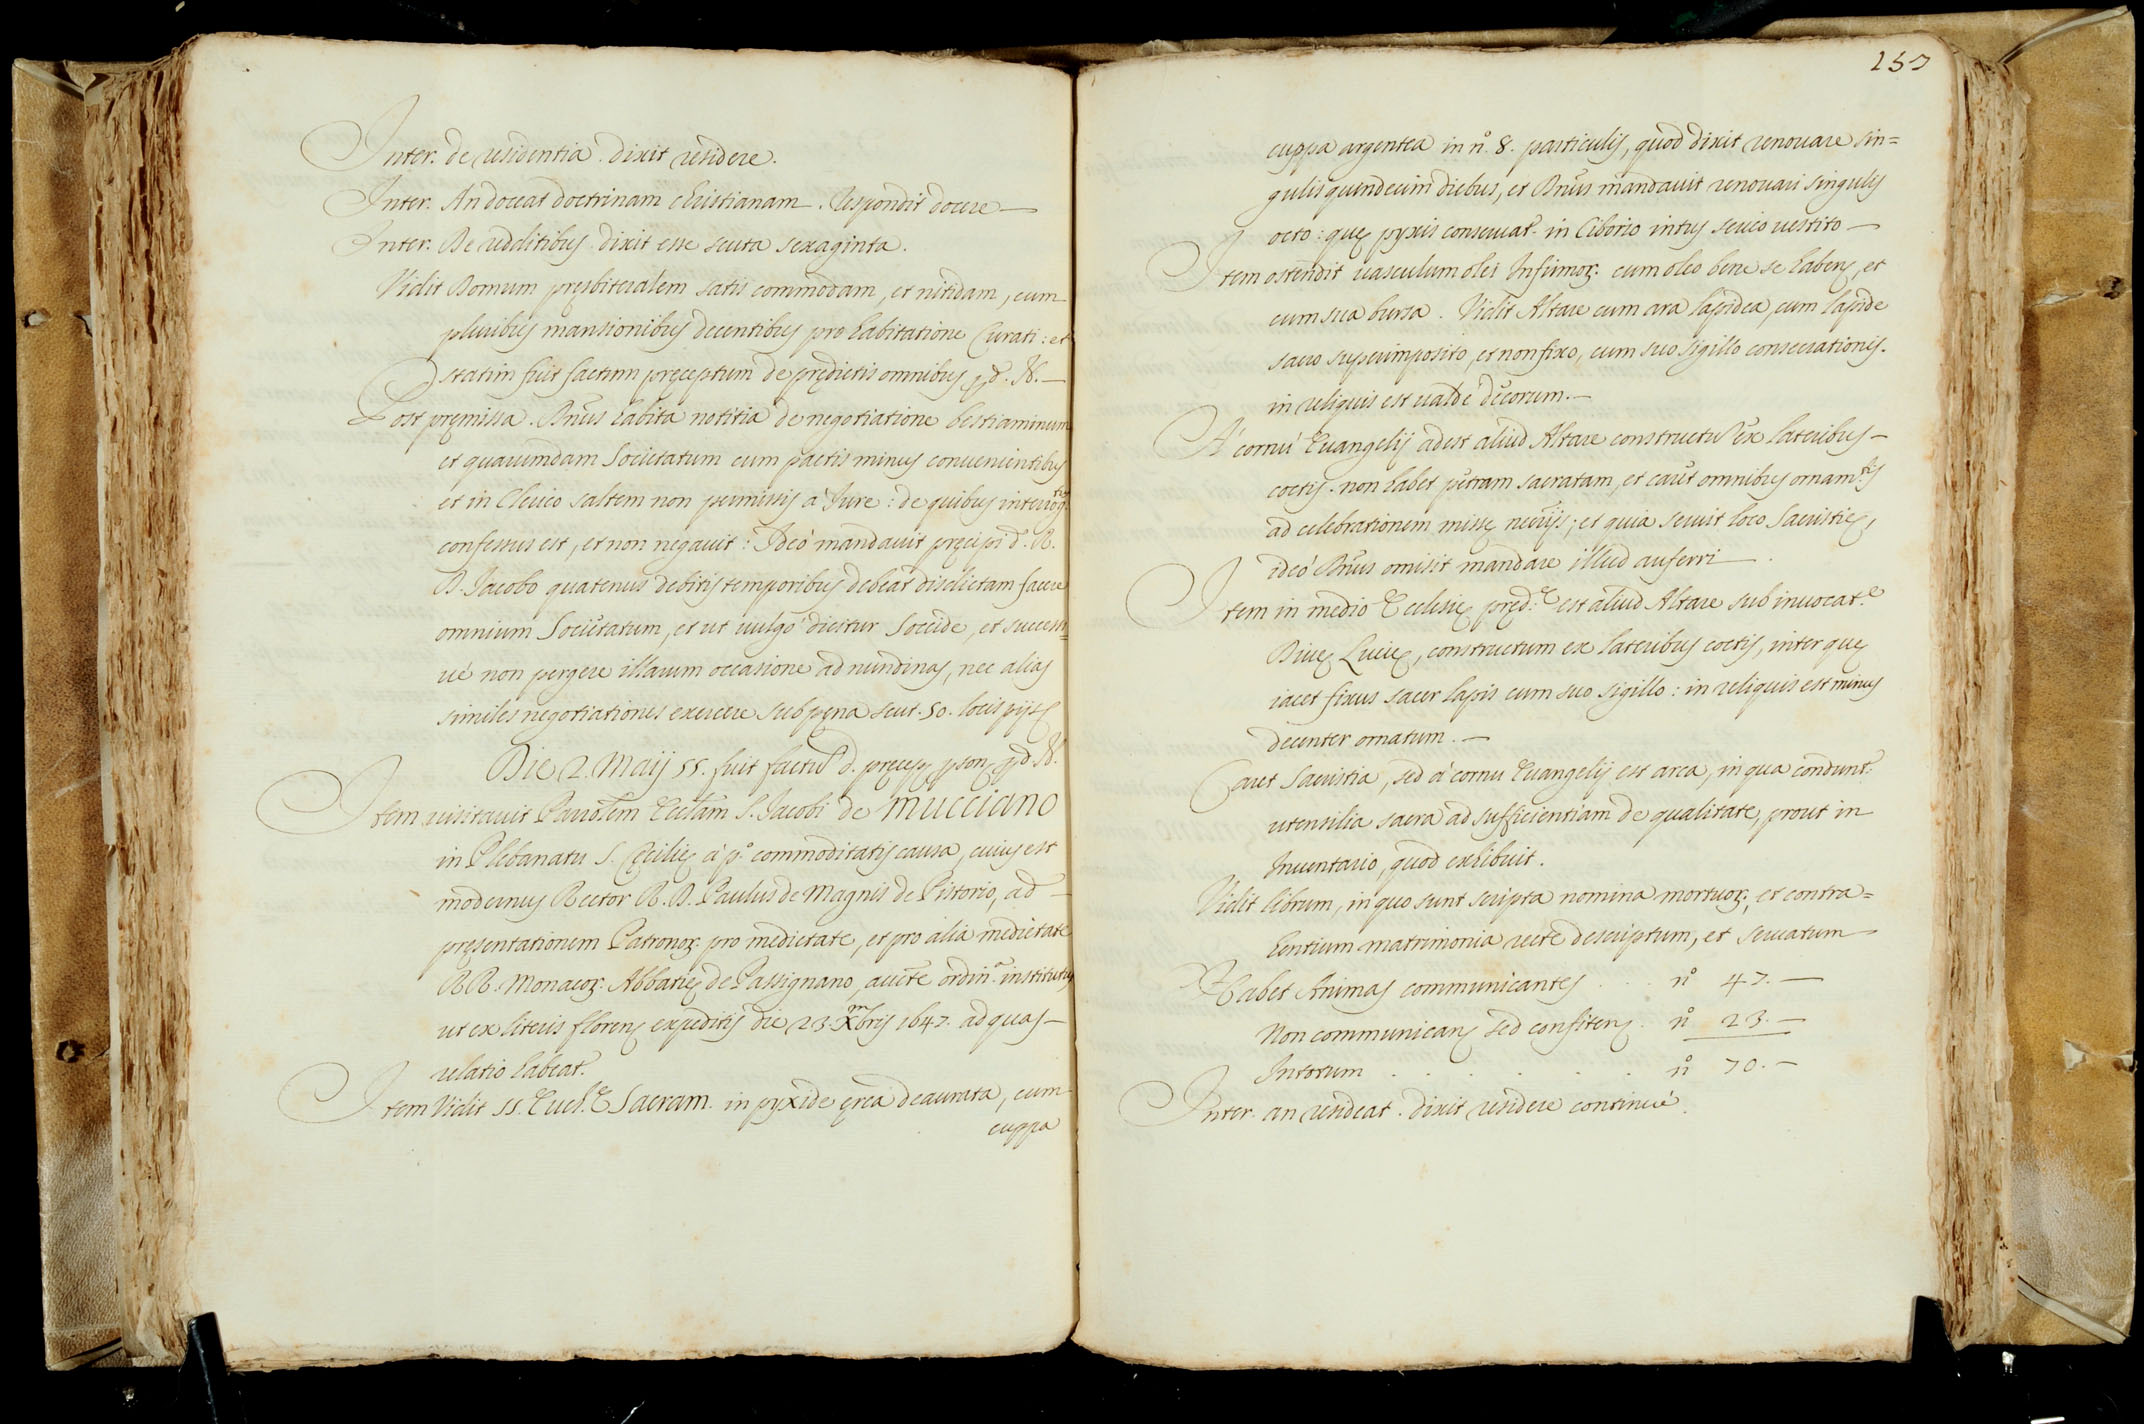 Inter. de residentia dixit residere.
Inter. An doceat doctrinam Christianam. Respondit docere
Inter. De redditibus dixit esse scuta sexaginta.
Vidit Domum pręsbiteralem satis commodam, et nitidam, cum
pluribus mansionibus decentibus pro habitatione Curati: et
statim fuit factum pręceptum de prędictis omnibus pd. N.
Post pręmissa. Dnus habita notitia de negotiatione bestiaminum
et quarumdam Societatum cum pactis minus convenientibus
et in Clerico saltem non permissis à Iure: de quibus interrog.tus
confessus est, et non negavit: Ideò mandavit pręcipi d. R.
D. Iacobo quatenus debitis temporibus debeat disdictam facere
omnium Societatum, et ut vulgò dicitur Soccide, et successi=
vè non pergere illarum occasione ad nundinas, nec alias
similes negotiationes exercere sub pęna scut. 50. locis pijs
Die 2. Maij 55. fuit factũ d. pręcep. pson. pd. N.
Item visitavit Parrõlem Ecclam S. Iacobi de Mucciano
in Plebanatu S. Cęcilię à p.º commoditatis causa, cuius est
modernus Rector R. D. Paulus de Magnis de Pistorio, ad
pręsentationem Patronoꝝ pro medietate, et pro alia medietate
RR. Monacoꝝ Abbatię de Passignano, aucte ordin.ª institutus
ut ex literis florenꝭ expeditis die 23. Xm̃bris 1647. ad quas
relatio habeat.
Item Vidit SS. Euch.ę Sacram. in pyxide ęrea deaurata, cum
cuppa
157
cuppa argentea in nº. 8. particulis, quod dixit renovare sin=
gulis quindecim diebus, et Dnus mandavit renovari singulis
octo: quę pyxis conservat. in Ciborio intus serico vestito
Item ostendit vasculum olei Infirmoꝝ cum oleo bene se habens, et
cum sua bursa. Vidit Altare cum ara lapidea, cum lapide
sacro superimposito, et non fixo, cum suo sigillo consecrationis.
in reliquis est valdè decorum.
A cornu Evangelij adest aliud Altare constructũ ex lateribus
coctis. non habet petram sacratam, et caret omnibus ornam.tis
ad celebrationem missę necrijs; et quia servit loco Sacristię,
ideò Dnus omisit mandare illud auferri.
Item in medio Ecclesię pręd.ę est aliud Altare sub invocat.e
Divę Lucię, constructum ex lateribus coctis, inter quę
iacet fixus sacer lapis cum suo sigillo: in reliquis est minus
decenter ornatum.
Caret Sacristia, sed à cornu Evangelij est arca, in qua condunt.
utensilia sacra ad sufficientiam de qualitate, prout in
Inventario, quod exhibuit.
Vidit librum, in quo sunt scripta nomina mortuoꝝ, et contra=
hentium matrimonia rectè descriptum, et servatum
Habet Animas communicantes . . . nº 47.
Non communicanꝭ sed confitenꝭ. nº 23.
Intotum . . . . . . nº 70.
Inter. an resideat. dixit residere continuè.